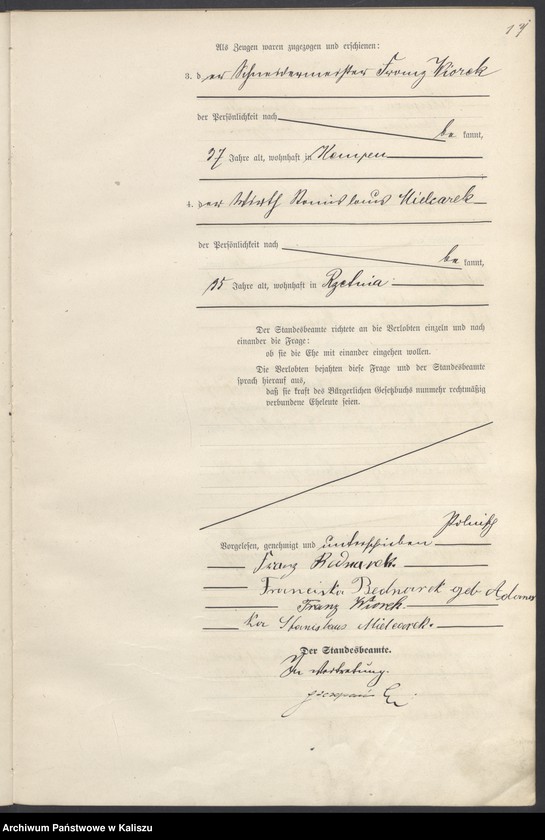 Als Zeugen waren zugezogen und erschienen:
3. der Schneidermeister Franz Kiorek
der Persönlichkeit nach
be kannt,
37 Jahre alt, wohnhaft in Kempen
4. der Wirth Stanislaus Mielcarek
der Persönlichkeit nach
be kannt,
35 Jahre alt, wohnhaft in Rzetnia.
Der Standesbeamte richtete an die Verlobten einzeln und nach
einander die Frage:
ob sie die Ehe mit einander eingehen wollen.
Die Verlobten bejahten diese Frage und der Standesbeamte
sprach hierauf aus,
daß sie kraft des Bürgerlichen Gesetzbuchs nunmehr rechtmäßig
verbundene Eheleute seien.
Vorgelesen, genehmigt und unterschrieben
Franz Bednarek.
Franciska Bednarek geb
Franz Kiorek.
Stanislaus Mielcarek.
Der Standesbeamte.
In Vertretung.
Archiwum Państwowe w Kaliszu